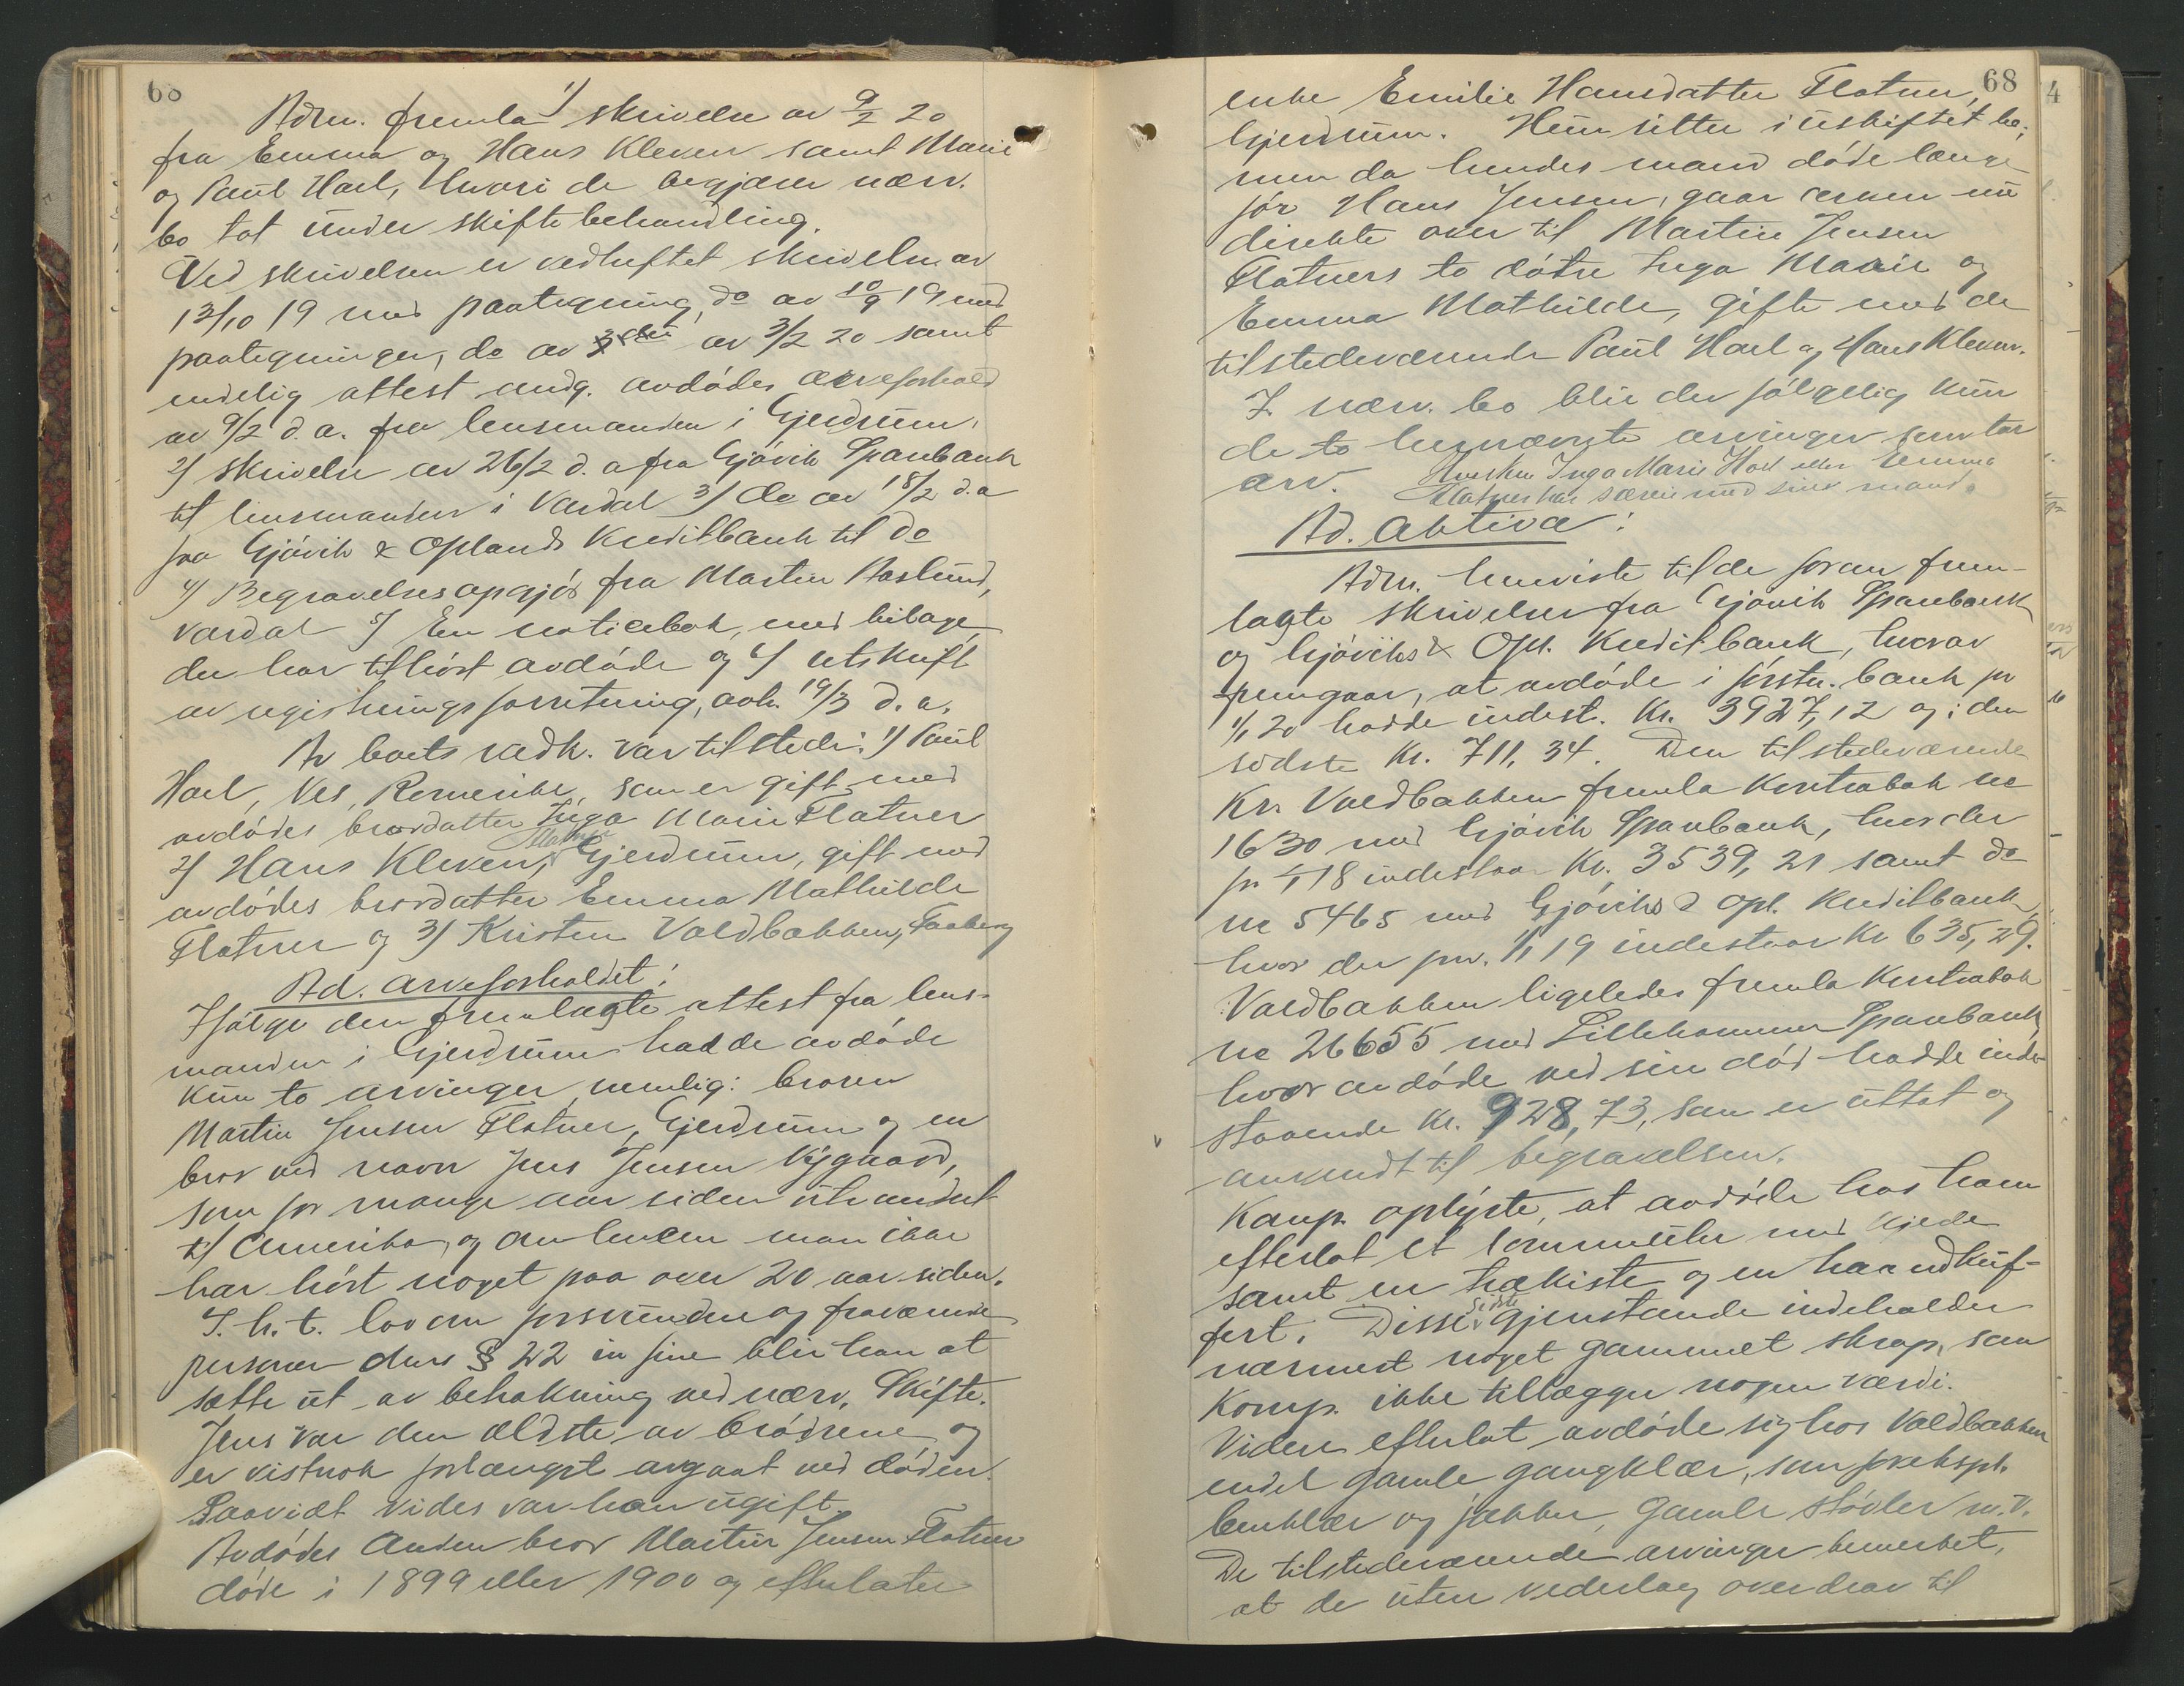 68
Adm. fremla 1) skrivelse av 9/2 20
fra Emma og Hans Kleven samt Marie
og Paul Hoel, hvori de begjærer nærv.
bo tat under skiftebehandling.
Ved skrivelsen er vedheftet skrivelse av
13/10 19 med paategning, do av 10/9 19 med
paategninger, do av av 3/2 20 samt
endelig attest ang. avdødes arveforhold
av 9/2 d. a. fra lensmanden i Gjerdrum.
2) skrivelse av 26/2 d. a fra Gjøvik Sparebank
til lensmanden i Vardal 3) do av 18/2 d. a
fra Gjøvik & Oplands Kreditbank til do
4) Begravelsesopgjør fra Martin Aaslund,
Vardal 5) En noticebok, med bilage,
der har tilhørt avdøde og 6) utskrift
av registreringsforretning, avh. 19/3 d. a.
Av boets vedk. var tilstede: 1) Paul
Hoel, Nes, Romerike, som er gift med
avdødes brordatter Inga Marie Flatner
2) Hans Kleven, Flatner Gjerdrum, gift med
avdødes brordatter Emma Mathilde
Flatner og 3) Kristen Valdbakken, Faaberg
Ad. arveforholdet:
Ifølge den fremlagte attest fra lens-
manden i Gjerdrum hadde avdøde
kun to arvinger, nemlig: broren
Martin Jensen Flatner, Gjerdrum og en
bror ved navn Jens Jensen Nygaard,
som for mange aar siden utvandret
til Amerika, og om hvem man ikke
har hørt noget paa over 20 aar siden.
I. h. t. lov om forsvundne og fraværende
personer dens § 22 in fine blir han at
sætte ut av betrakning ved nærv. Skifte.
Jens var den ældste av brødrene og
er vistnok forlængst avgaat ved døden.
Saavidt vides var han ugift.
Avdødes anden bror Martin Jensen Flatner
døde i 1899 eller 1900 og efterlater
68
enke Emilie Hansdatter Flatner,
Gjerdrum. Hun sitter i uskiftet bo;
men da hendes mand døde længe
før Hans Jensen, gaar arven nu
direkte over til Martin Jensen
Flatners to døtre Inga Marie og
Emma Mathilde, gifte med de
tilstedeværende Paul Hoel og Hans Kleven.
I nærv. bo blir der følgelig kun
de to hernævnte arvinger som tar
arv. Hverken Inga Marie Hoel eller Emma
Flatner har særeie med sin mand.
Ad. aktiva:
Adm. henviste til de foran frem-
lagte skrivelser fra Gjøvik Sparebank
og Gjøviks & Opl. Kreditbank, hvorav
fremgaar, at avdøde i førstn. bank pr
1/1 20 hadde indest. Kr. 3927,12 og i den
sidste Kr. 711,34. Den tilstedeværende
Kr. Valdbakken fremla kontrabok no
1630 med Gjøvik Sparebank, hvor der
pr 1/1 18 indestaar Kr. 3539,21 samt do
no 5465 med Gjøviks & Opl. Kreditbank,
hvor der pr. 1/1 19 indestaar Kr 635,29.
Valdbakken ligeledes fremla kontrabok
no 26655 med Lillehammer Sparebank,
hvor avdøde ved sin død hadde inde-
staaende Kr. 928,73, som er uttat og
anvendt til begravelsen.
Komp. oplyste, at avdøde hos ham
efterlot et lommeur med kjede
samt en trækiste og en haandkuf-
fert. Disse sidste gjenstande indeholder
nærmest noget gammelt skrap, som
Komp. ikke tillægger nogen værdi.
Videre efterlot avdøde sig hos Valdbakken
endel gamle gangklær, som f.eksp.
benklær og jakker, gamle støvler m. v.
De tilstedeværende arvinger bemerket,
at de uten vederlag overdrar til